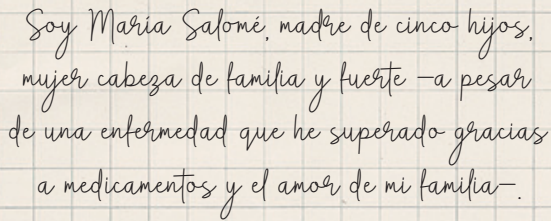 Soy María Salomé, madre de cinco hijos,
mujer cabeza de familia y fuerte —a pesar
de una enfermedad que he superado gracias
a medicamentos y el amor de mi familia—.